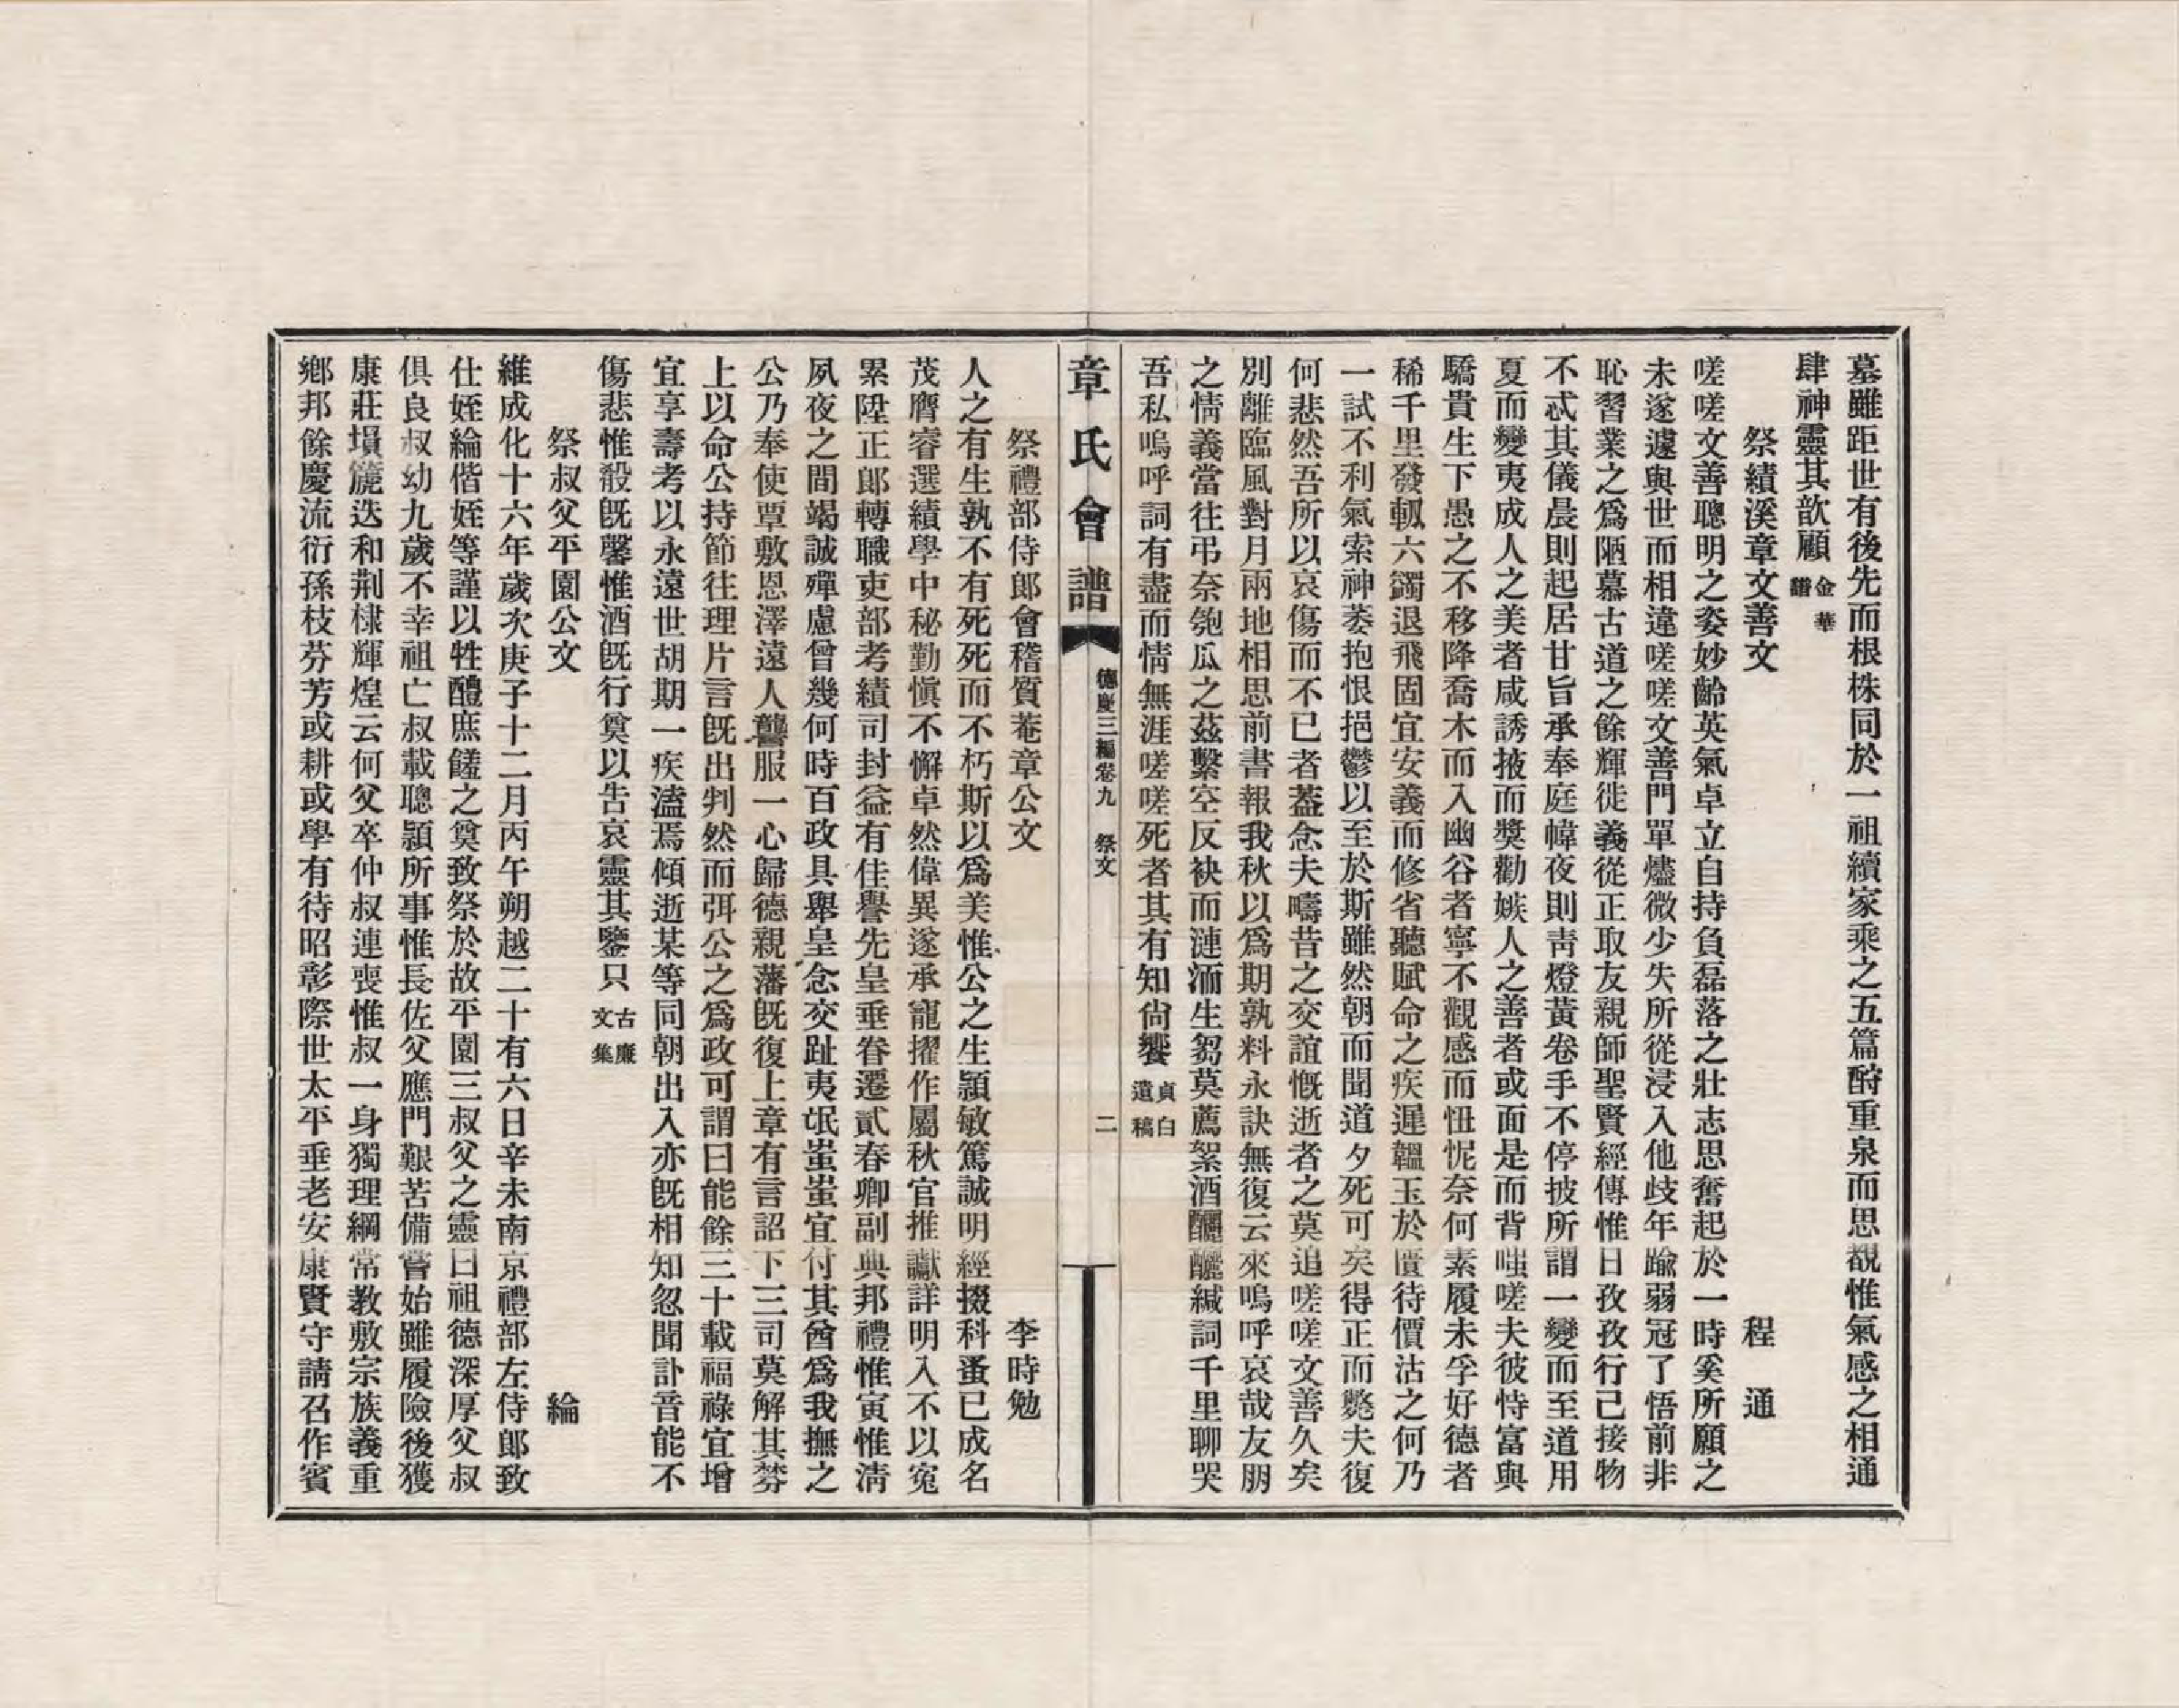 墓雖距世有後先而根株同於一祖續家乘之五篇酹重泉而思覩惟氣感之相通
肆神靈其歆顧金華譜
祭績溪章文善文 程通
嗟嗟文善聰明之姿妙齡英氣卓立自持負磊落之壯志思奮起於一時奚所願之
未遂遽與世而相違嗟嗟文善門單燼微少失所從浸入他歧年踰弱冠了悟前非
恥習業之爲陋慕古道之餘輝徙義從正取友親師聖賢經傳惟日孜孜行己接物
不忒其儀晨則起居甘旨承奉庭幃夜則靑燈黃卷手不停披所謂一變而至道用
夏而變夷成人之美者咸誘掖而獎勸嫉人之善者或面是而背嗤嗟夫彼恃富與
驕貴生下愚之不移降喬木而入幽谷者寧不觀感而忸怩奈何素履未孚好德者
稀千里發軔六鷁退飛固宜安義而修省聽賦命之疾遲韞玉於匱待價沽之何乃
一試不利氣索神萎抱恨挹鬱以至於斯雖然朝而聞道夕死可矣得正而斃夫復
何悲然吾所以哀傷而不已者蓋念夫疇昔之交誼慨逝者之莫追嗟嗟文善久矣
別離臨風對月兩地相思前書報我秋以爲期孰料永訣無復云來嗚呼哀哉友朋
之情義當往弔奈匏瓜之茲繫空反袂而漣洏生芻莫薦絮酒釃緘詞千里聊哭
吾私嗚呼詞有盡而情無涯嗟嗟死者其有知尙饗貞白遺稿
章氏會譜 德慶三編卷九 祭文 二
祭禮部侍郎會稽質菴章公文 李時勉
人之有生孰不有死死而不朽斯以爲美惟公之生顯敏篤誠明經掇科蚤已成名
茂膺睿選績學中秘勤愼不懈卓然偉異遂承寵擢作屬秋官推讞詳明入不以寃
累陞正郎轉職吏部考績司封益有佳譽先皇垂眷遷貳春卿副典邦禮惟寅惟淸
夙夜之間竭誠殫慮曾幾何時百政具舉皇念交趾夷氓蚩蚩宜付其酋爲我撫之
公乃奉使覃敷恩澤遠人讋服一心歸德親藩旣復上章有言詔下三司莫解其棼
上以命公持節往理片言旣出判然而弭公之爲政可謂曰能餘三十載福祿宜增
宜享壽考以永遠世胡期一疾溘焉傾逝某等同朝出入亦旣相知忽聞訃音能不
傷悲惟殽旣馨惟酒旣行奠以吿哀靈其鑒只古廉文集
祭叔父平園公文 綸
維成化十六年歲次庚子十二月丙午朔越二十有六日辛未南京禮部左侍郎致
仕姪綸偕姪等謹以牲醴庶饈之奠致祭於故平園三叔父之靈曰祖德深厚父叔
俱良叔幼九歲不幸祖亡叔載聰顯所事惟長佐父應門艱苦備嘗始雖履險後獲
康莊塤箎迭和荆棣輝煌云何父卒仲叔連喪惟叔一身獨理綱常教敷宗族義重
鄕邦餘慶流衍孫枝芬芳或耕或學有待昭彰際世太平垂老安康賢守請召作賓